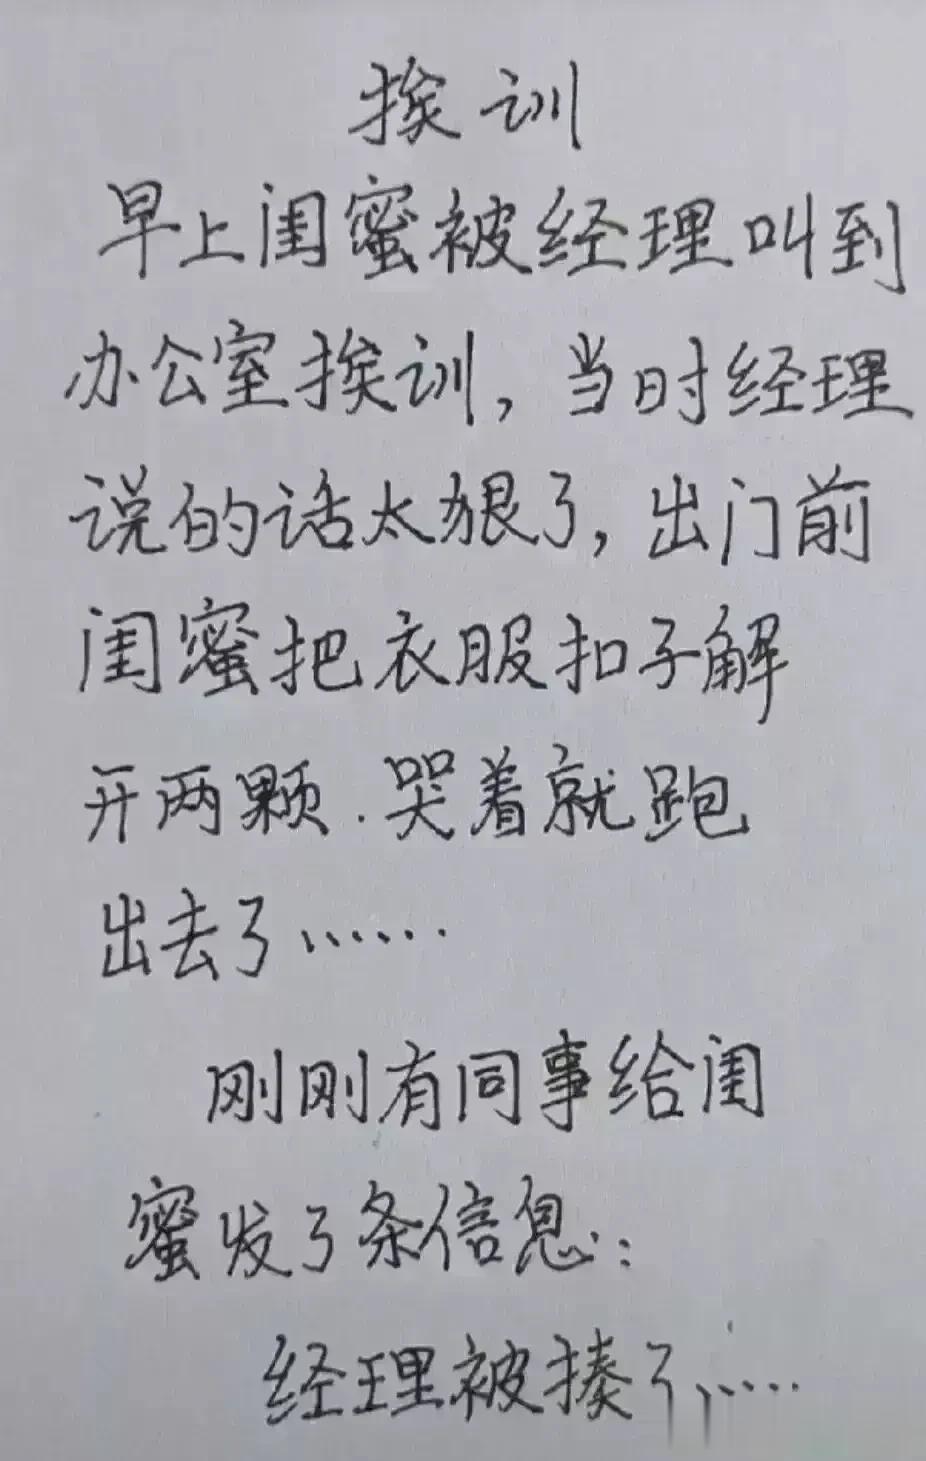 挨训
早上闺蜜被经理叫到
办公室挨训，当时经理
说的话太狠了，出门前
闺蜜把衣服扣子解
开两颗．哭着就跑
出去了……
刚刚有同事给闺
蜜发了条信息：
经理被揍了……